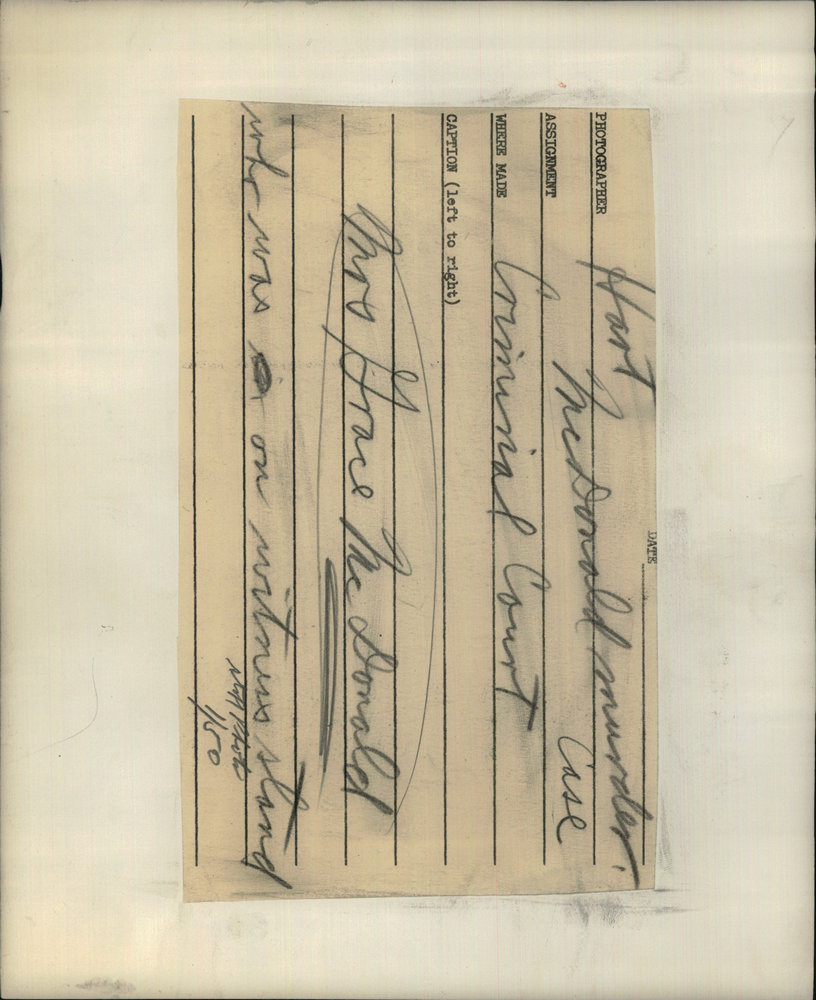 DATE
PHOTOGRAPHER Hart
ASSIGNMENT McDonald murder
Case
WHERE MADE Criminal Court
CAPTION (left to right)
Mrs Grace McDonald
who was on witness stand
staff photo
1/50